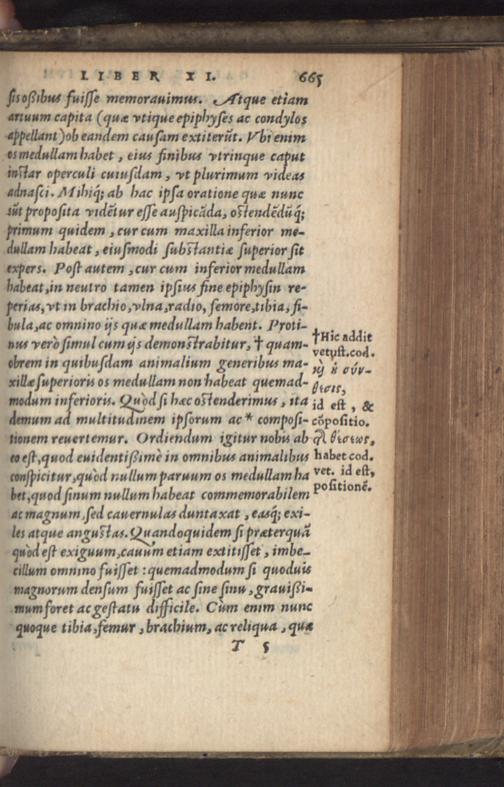 LIBER XI. 665
sis oßibus fuisse memorauimus. Atque etiam
artuum capita (quæ vtique epiphyses ac condylos
appellant) ob eandem causam extiterūt. Vbi enim
os medullam habet, eius finibus vtrinque caput
instar operculi cuiusdam, vt plurimum videas
adnasci. Mihiq; ab hac ipsa oratione quæ nunc
sūt proposita vidētur esse auspicāda, ostendēdūq;
primum quidem, cur cum maxilla inferior me-
dullam habeat, eiusmodi substantiæ superior sit
expers. Post autem, cur cum inferior medullam
habeat, in neutro tamen ipsius fine epiphysin re-
perias, vt in brachio, vlna, radio, femore, tibia, fi-
bula, ac omnino ijs quæ medullam habent. Proti-
nus verò simul cum ijs demonstrabitur, † quam-
obrem in quibusdam animalium generibus ma-
xillæ superioris os medullam non habeat quemad-
modum inferioris. Quòd si hæc ostenderimus, ita
demum ad multitudinem ipsorum ac * composi-
tionem reuertemur. Ordiendum igitur nobis ab
eo est, quod euidentißimè in omnibus animalibus
conspicitur, quòd nullum paruum os medullam ha
bet, quod sinum nullum habeat commemorabilem
ac magnum, sed cauernulas duntaxat, easq; exi-
les atque angustas. Quandoquidem si præterquā
quòd est exiguum, cauum etiam extitisset, imbe-
cillum omnino fuisset: quemadmodum si quoduis
magnorum densum fuisset ac sine sinu, grauißi-
mum foret ac gestatu difficile. Cùm enim nunc
quoque tibia, femur, brachium, ac reliqua, quæ
T 5
†Hic addit
vetust. cod.
σύν-
θεσις,
id est, &
cōpositio.
θέσεως,
habet cod.
vet. id est,
positionē.